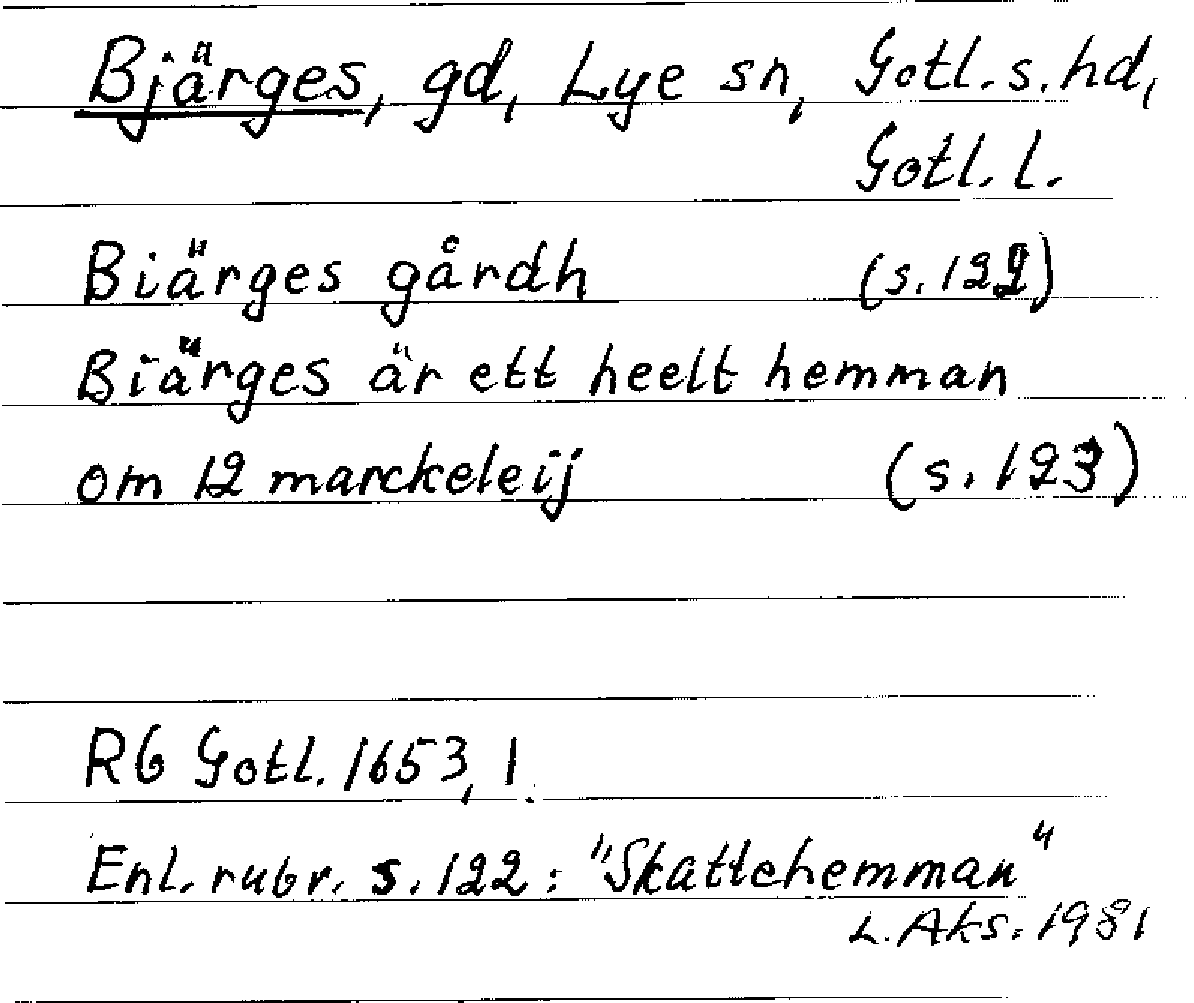 Bjärges, gd, Lye sn, Gotl. s. hd,
Gotl. l.
Biärges gårdh (s. 122)
Biärges är ett heelt hemman
om 12 marckeleij (s. 123)
RG Gotl. 1653, 1.
Enl. rubr. s. 122: "Skattehemman"
L. Aks. 1981